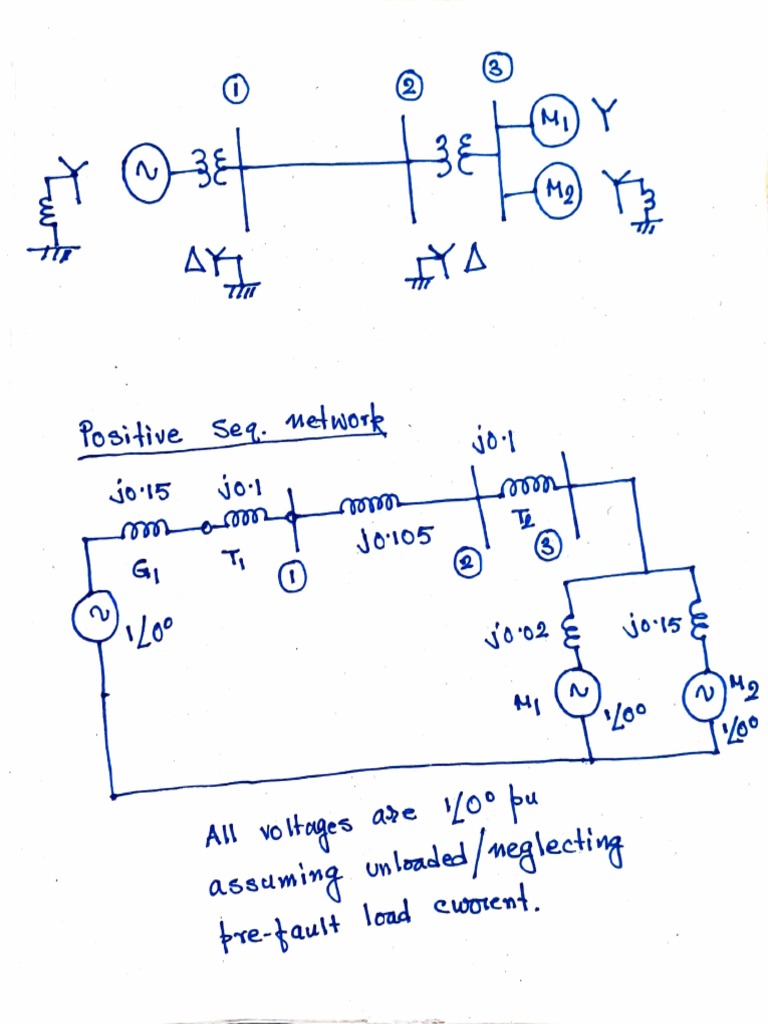 1 2 3
M1 Y
~
M2
ΔY
YΔ
Positive Seq. Network
j0.1
j0.15 j0.1
G1 T1 1
j0.105
2
T2
3
~ 1∠0°
j0.02 j0.15
M1 ~ 1∠00
~ M2
1∠00
All voltages are 1∠0° pu
assuming unloaded/neglecting
pre-fault load current.